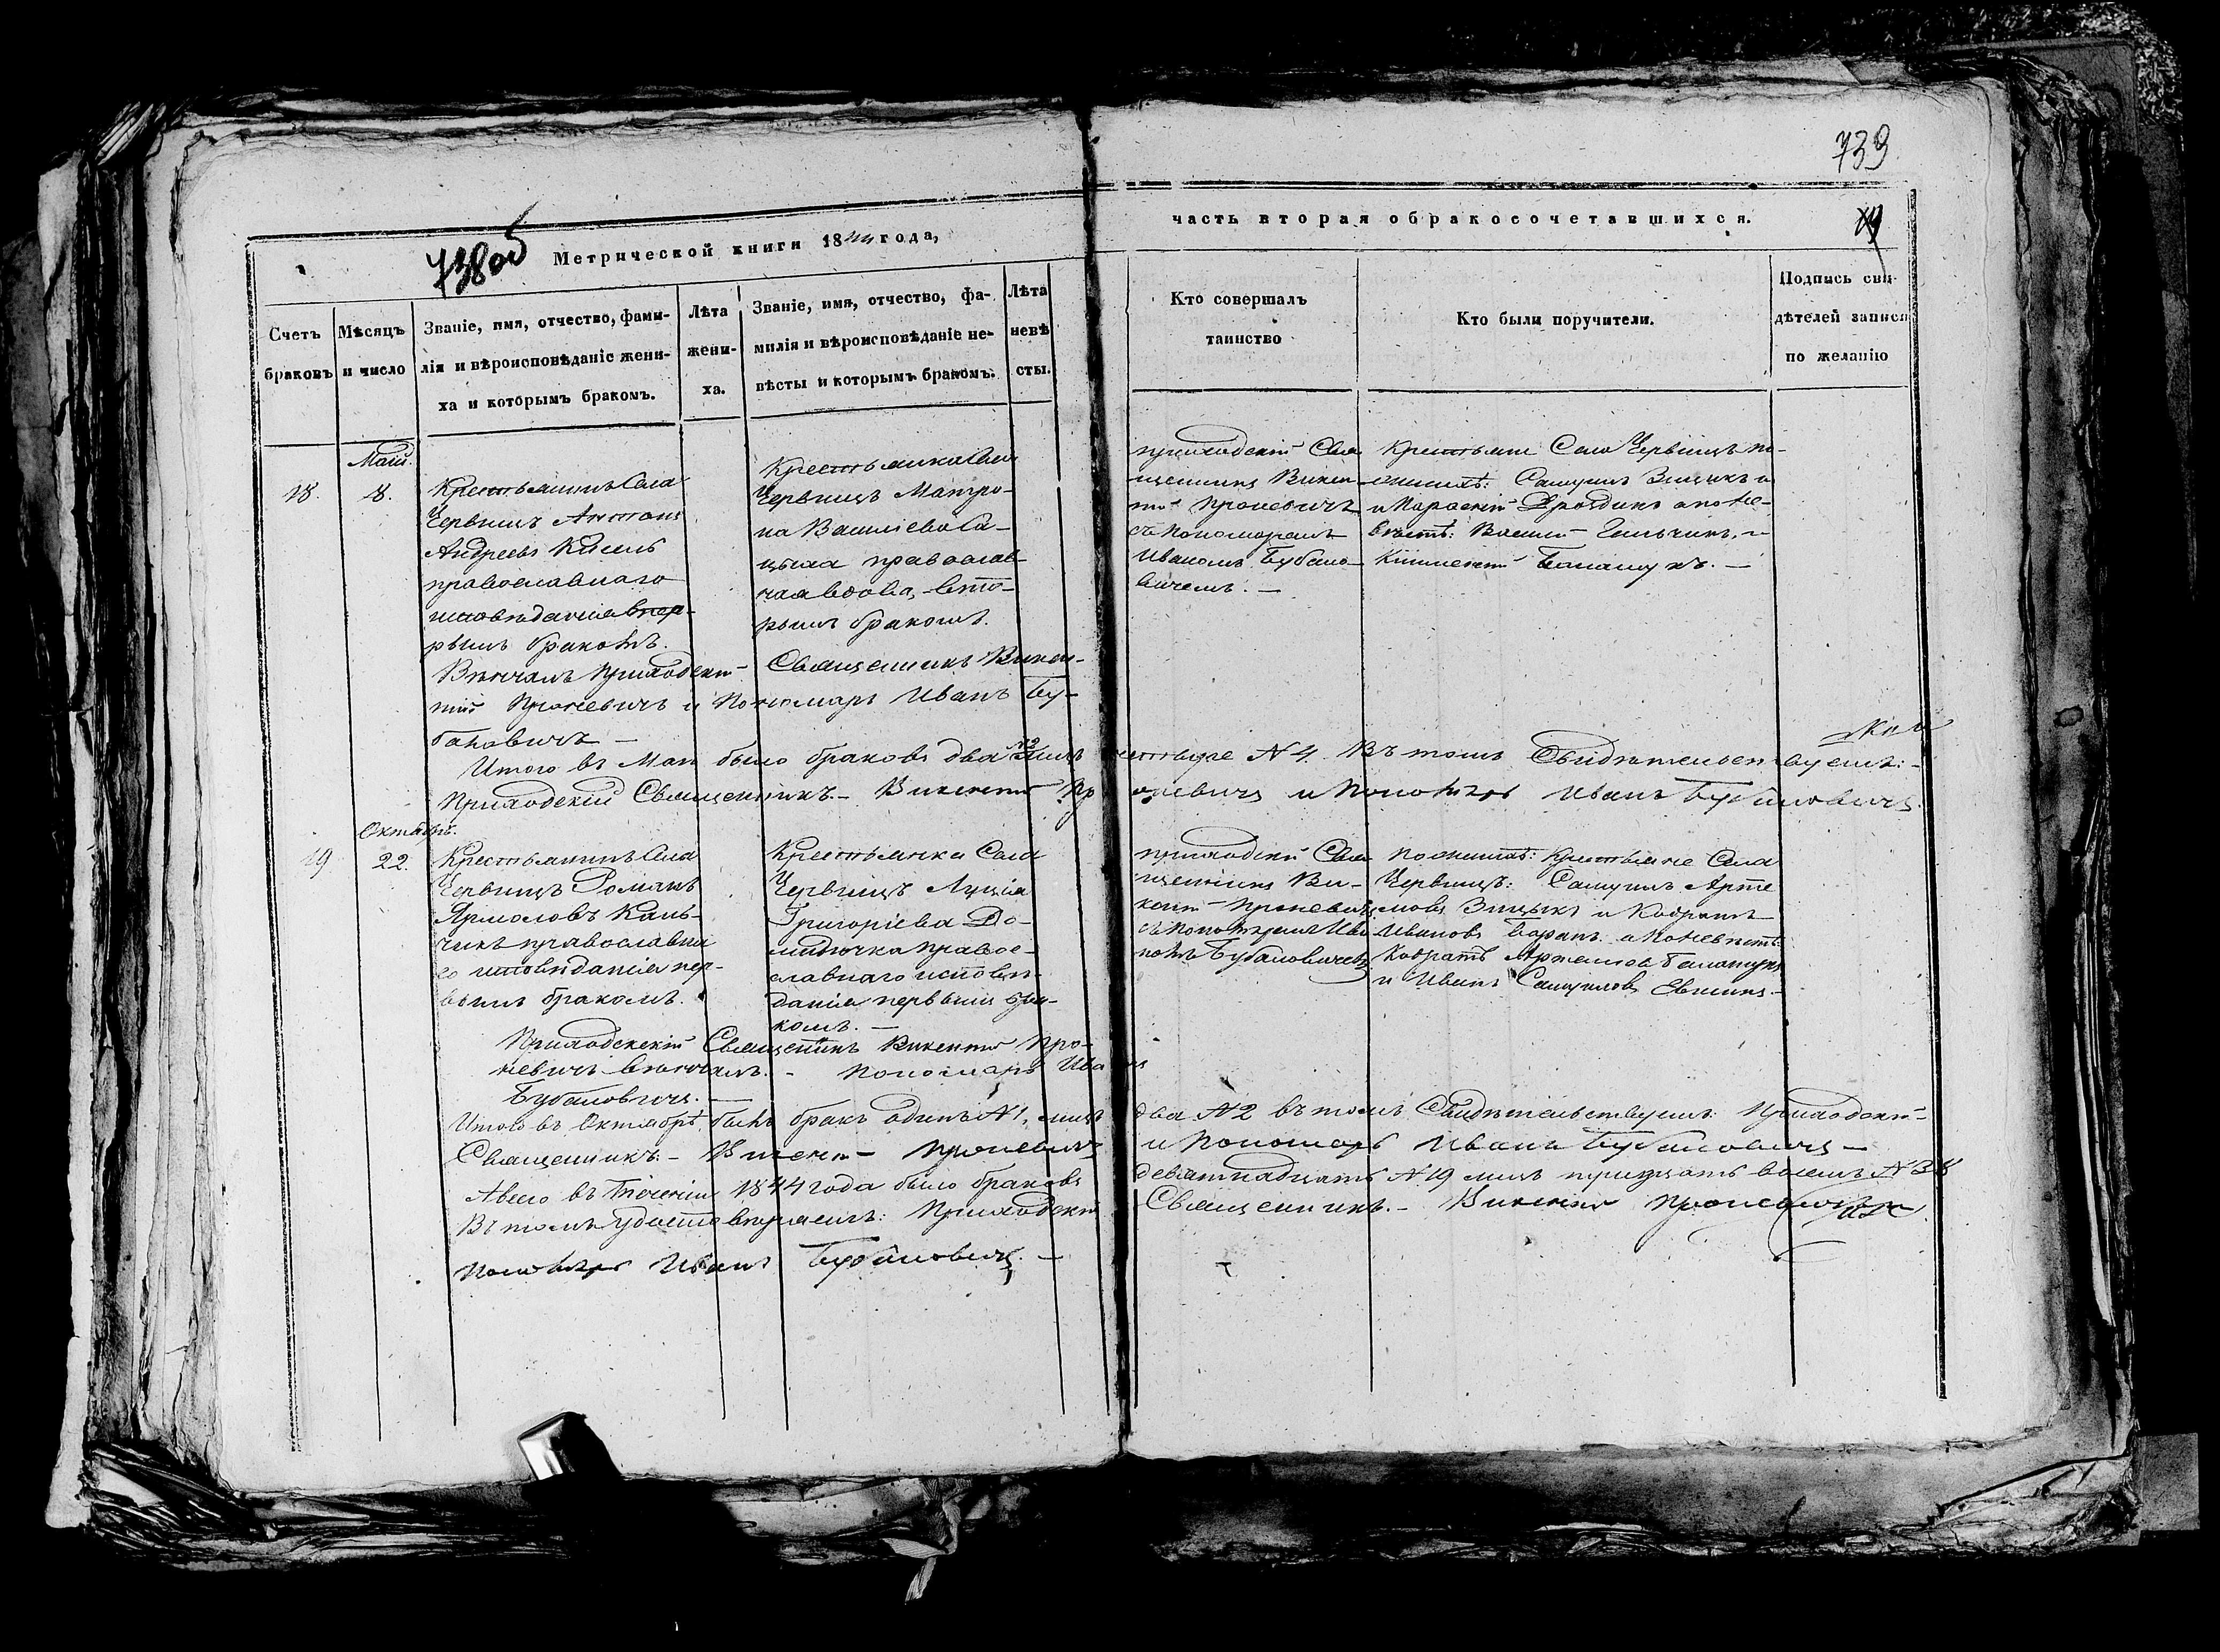 739
738об
Метрической книги 1844 года,
часть вторая о бракосочетавшихся.
19
Счетъ браковъ
Мѣсяцъ и число
Званіе, имя, отчество, фами-
лія и вѣроисповѣданіе жени-
ха и которымъ бракомъ.
Лѣта
жени-
ха.
Званіе, имя, отчество, фа-
милія и вѣроисповѣданіе не-
вѣсты и которымъ бракомъ.
Лѣта
невѣ
сты.
Кто совершалъ
таинство
Кто были поручители.
Подпись сви-
дѣтелей записи
по желанію
Май.
18.
8.
Крестьянинъ Села
Червищъ Антонъ
Андреевъ Кисель
православнаго
исповѣданія впер-
рвымъ бракомъ.
Крестьянка Села
Червищъ Матро-
на Васильева
православ-
ная вдова, вто-
рымъ бракомъ.
приходскій Свя
щенникъ Викен-
тій Проневичъ
съ Пономаремъ
Иваномъ Бубано-
вичемъ. —
Крестьяне Села Червищъ по
женихѣ: Самуилъ Зицыкъ
и Дроздикъ а по не-
вѣстѣ: Василій и
Климентій Баламутъ. —
Вѣнчалъ Приходскій Священникъ Викен-
тій Проневичъ и Пономарь Иванъ Бу-
бановичъ —
Итого въ Маѣ было браковъ два №2 лицъ четыре №4. Въ томъ Свидѣтельствуемъ:
Приходскій Священникъ. — Викентій Проневичъ и Пономарь Иванъ Бубановичъ.
Октябрь.
19
22.
Крестьянинъ Села
Червищъ Романъ
Ярмоловъ Каль-
чикъ православна
го исповѣданія пер-
вымъ бракомъ.
Крестьянка Села
Червищъ Луція
Григоріева До-
мидючка правос-
лавнаго исповѣ-
данія первымъ бра-
комъ. —
приходскій Свя
щенникъ Ви-
кент Проневичъ
съ Пономаремъ Ива
номъ Бубановичемъ
по женихѣ: крестьяне Села
Червищъ: Самуилъ Арте
мовъ Зицыкъ и Кодратъ
Ивановъ Баранъ а по невѣстѣ:
Кодратъ Артемовъ Баламутъ
и Иванъ Самуиловъ
Приходскій Священникъ Викентій Про-
невичъ вѣнчалъ. — Пономарь Иванъ
Бубановичъ. —
Итого въ Октябрѣ былъ бракъ одинъ №1, лицъ два №2 въ томъ Свидѣтельствуемъ: Приходскій
Священникъ. — Викентій Проневичъ и Пономарь Иванъ Бубановичъ —
А всего въ теченіи 1844 года было браковъ девятнадцать №19 лицъ тридцать восемь №38
Въ томъ удостовѣряемъ: Приходскій Священникъ. — Викентій Проневичъ
пономарь Иванъ Бубановичъ. —